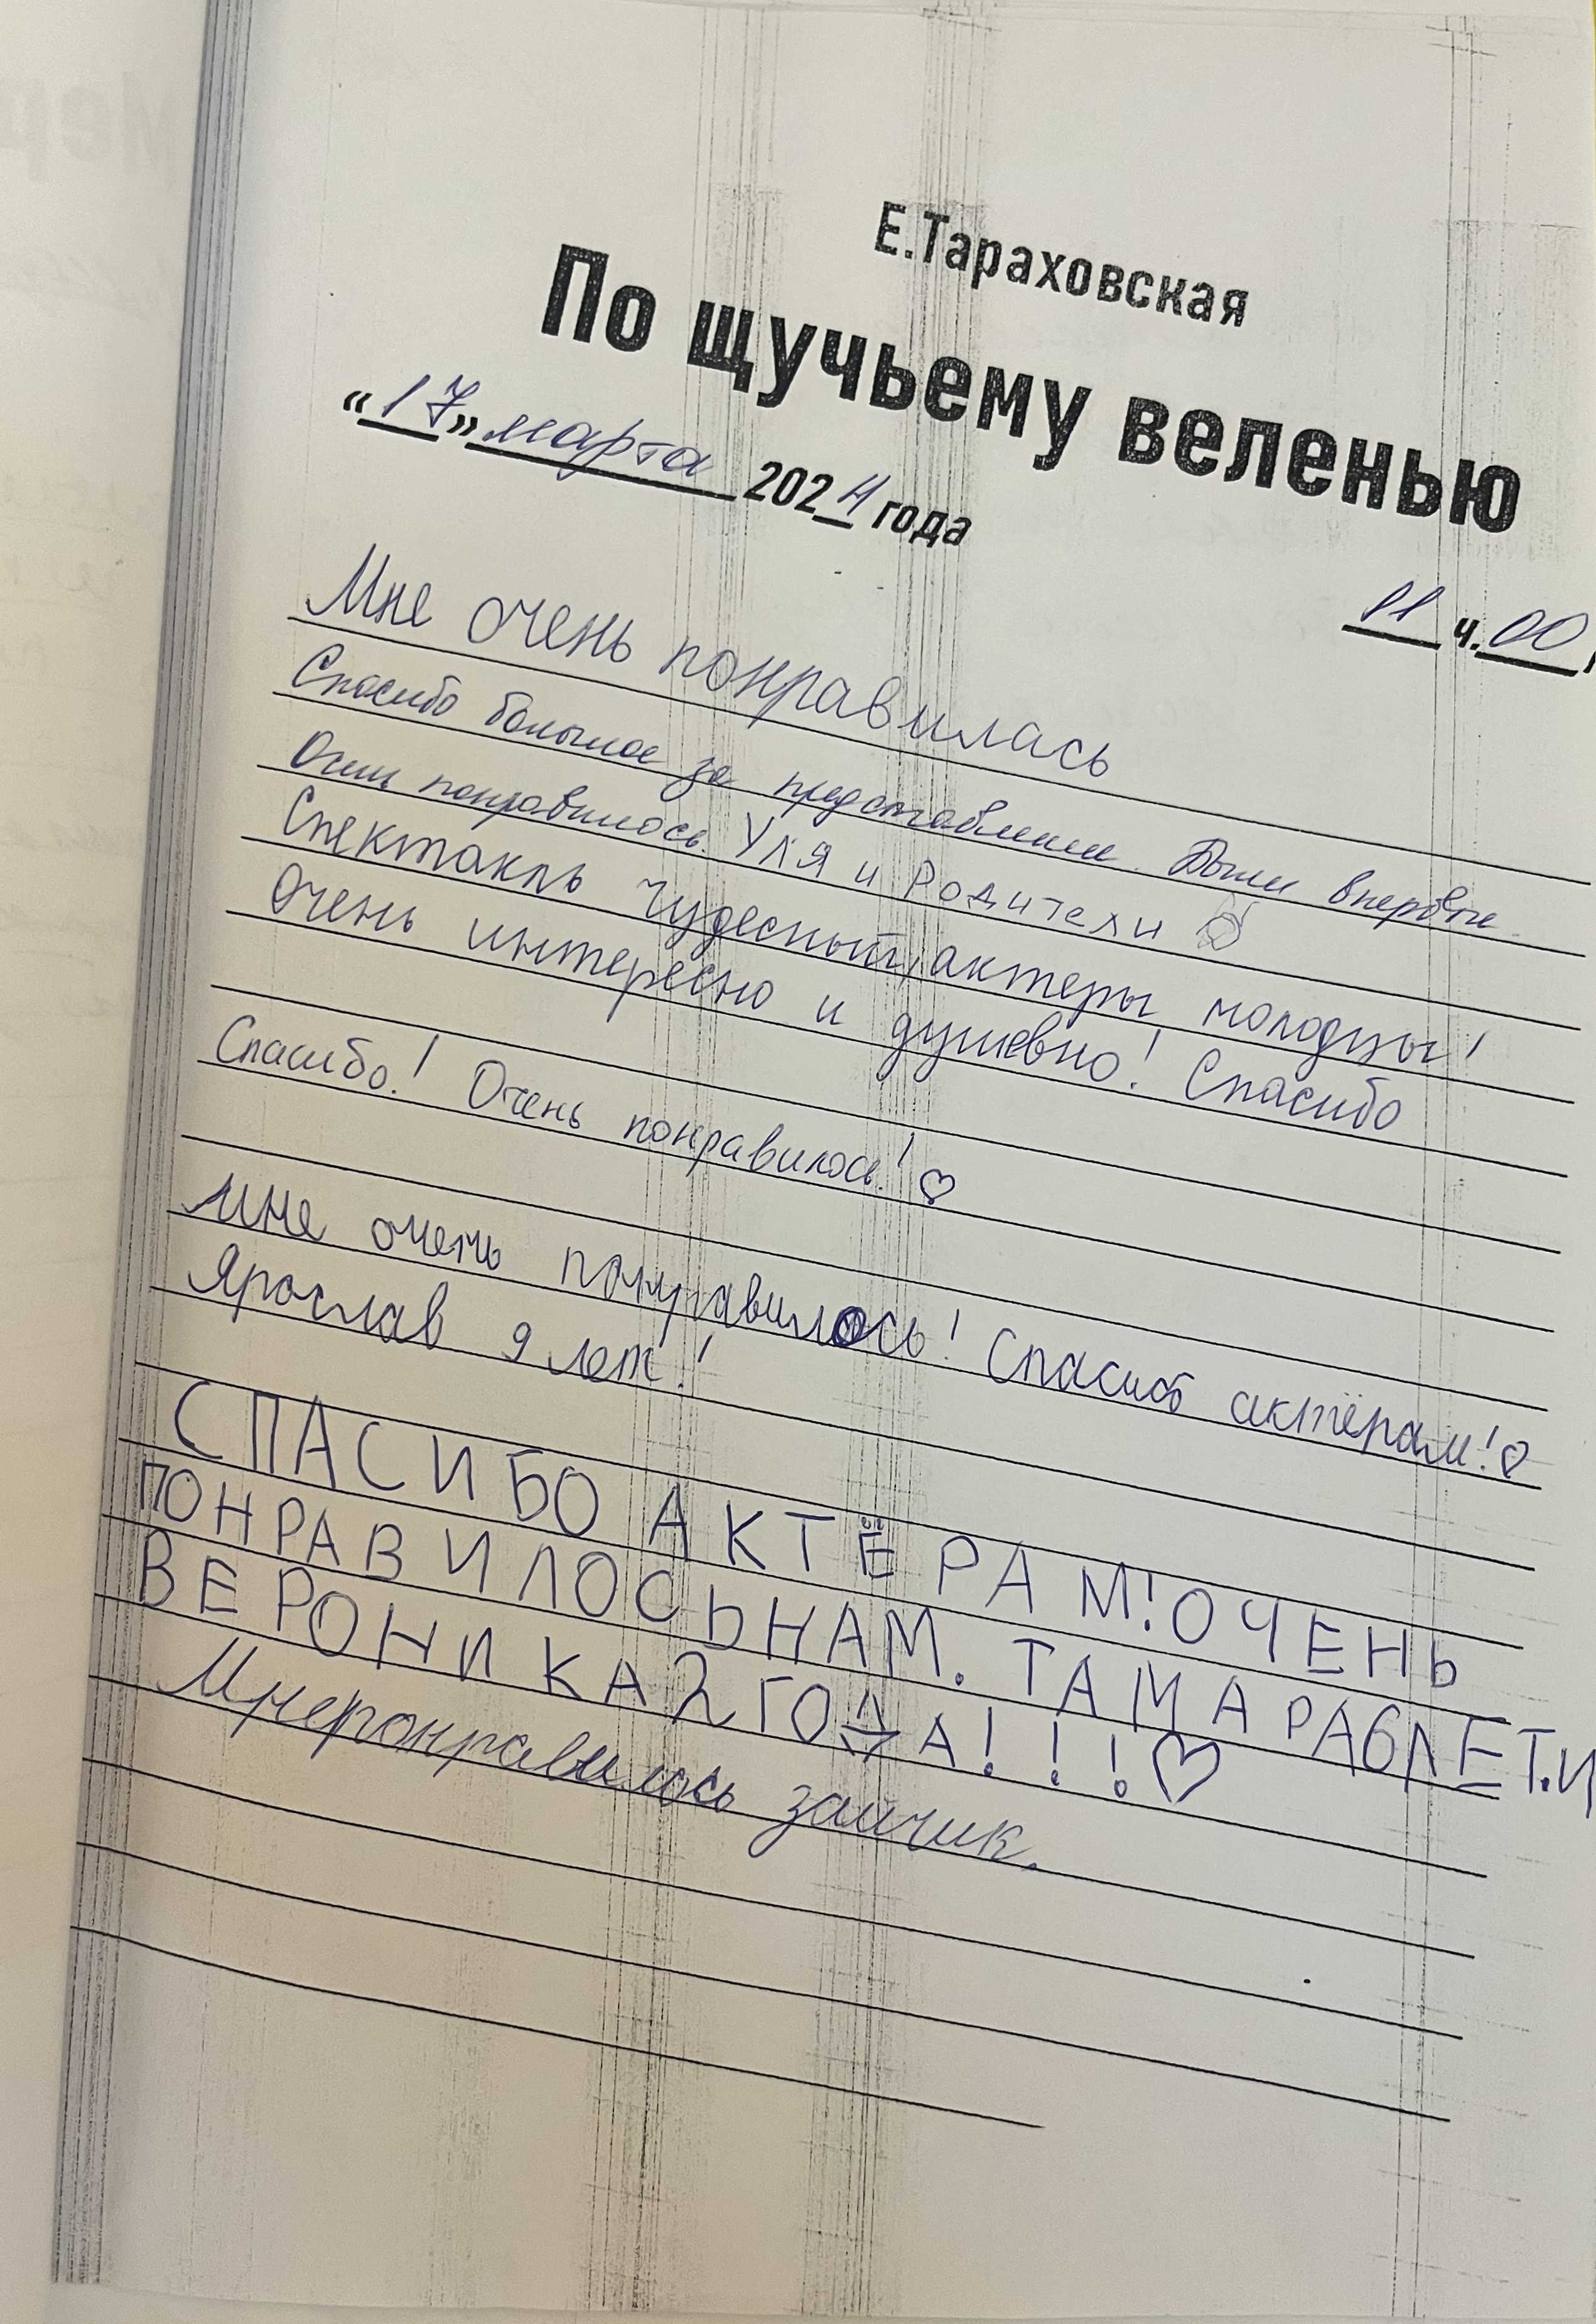 Е.Тараховская
По щучьему веленью
«17» марта 2024 года
11 ч. 00
Мне очень понравилась
Спасибо большое за представление. Были впервые.
Очень понравилось. Уля и Родители
Спектакль чудесный, актеры молодцы!
Очень интересно и душевно! Спасибо
Спасибо! Очень понравилось! ♡
Мне очень понравилось! Спасибо актёрам! ♡
Ярослав 9 лет!
СПАСИБО АКТЁРАМ! ОЧЕНЬ
ПОНРАВИЛОСЬ НАМ. ТАМАРА 6 ЛЕТ. И
ВЕРОНИКА 2 ГОДА!!! ♡
Мне понравилось зайчик.